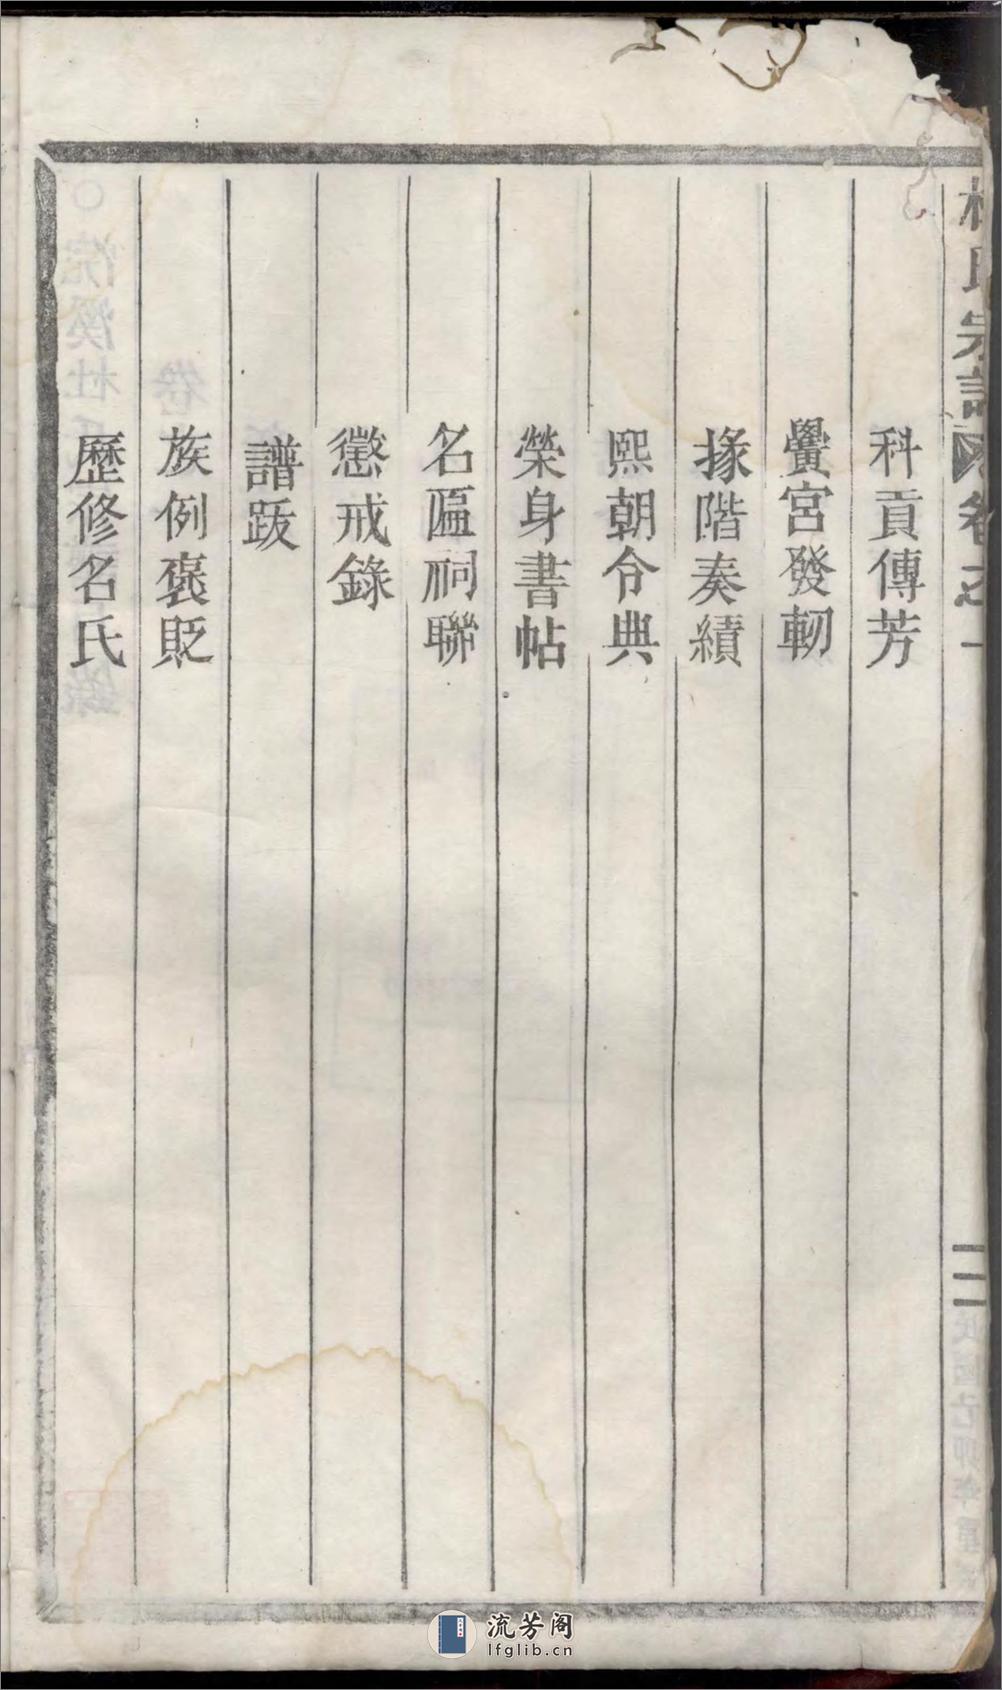 杜氏宗譜 卷之一
二
科貢傳芳
黌宮發軔
掾階奏績
熙朝令典
榮身書帖
名匾祠聯
懲戒錄
譜跋
族例褒貶
歷修名氏
流芳阁
lfglib.cn